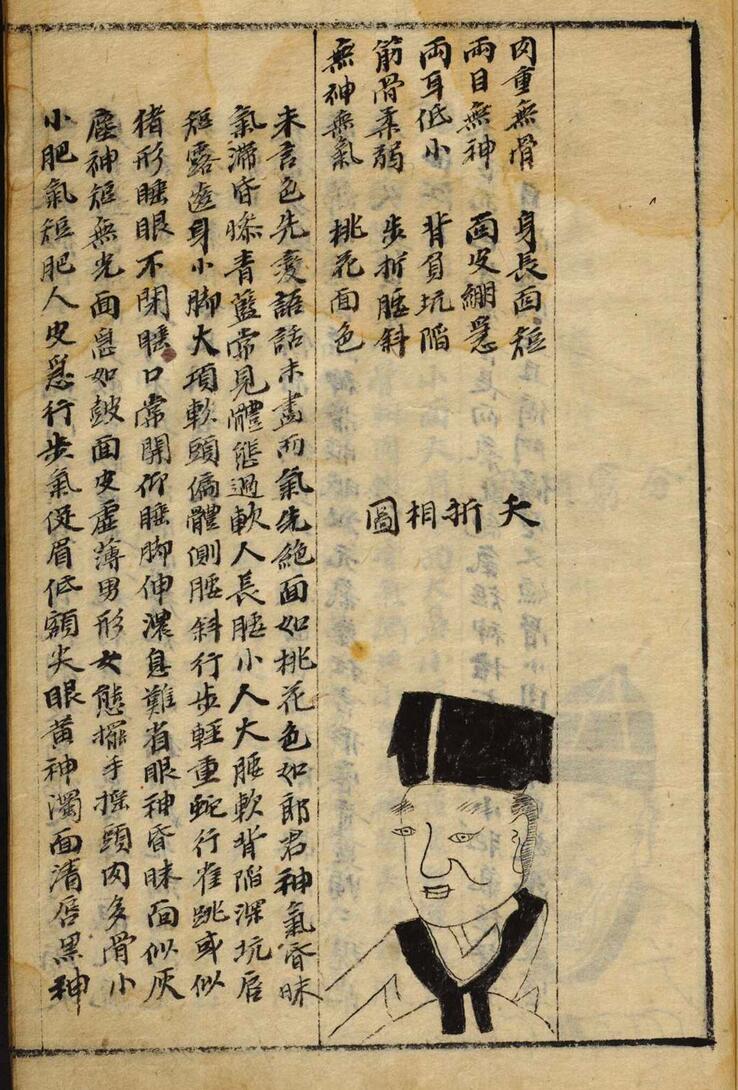 肉重無骨　身長面短
兩目無神　面皮繃急
兩耳低小　背負坑陷
筋骨柔弱　步折腰斜
無神無氣　桃花面色
夭折相圖
未言色先變語話未盡而氣先絕面如桃花色如郎君神氣昏昧
氣滯昏慘青藍常見體態過軟人長腰小人大腰軟背陷深坑唇
短露齒身小脚大項軟頭偏體側腰斜行步輕重蛇行雀跳或似
猪形睡眼不閉睡口常開仰睡脚伸濃息難省眼神昏昧面似灰
塵神短無光面急如鼓面皮虛薄男形女態擺手搖頭肉多骨小
小肥氣短肥人皮急行步氣促眉低額尖眼黄神濁面清唇黑神